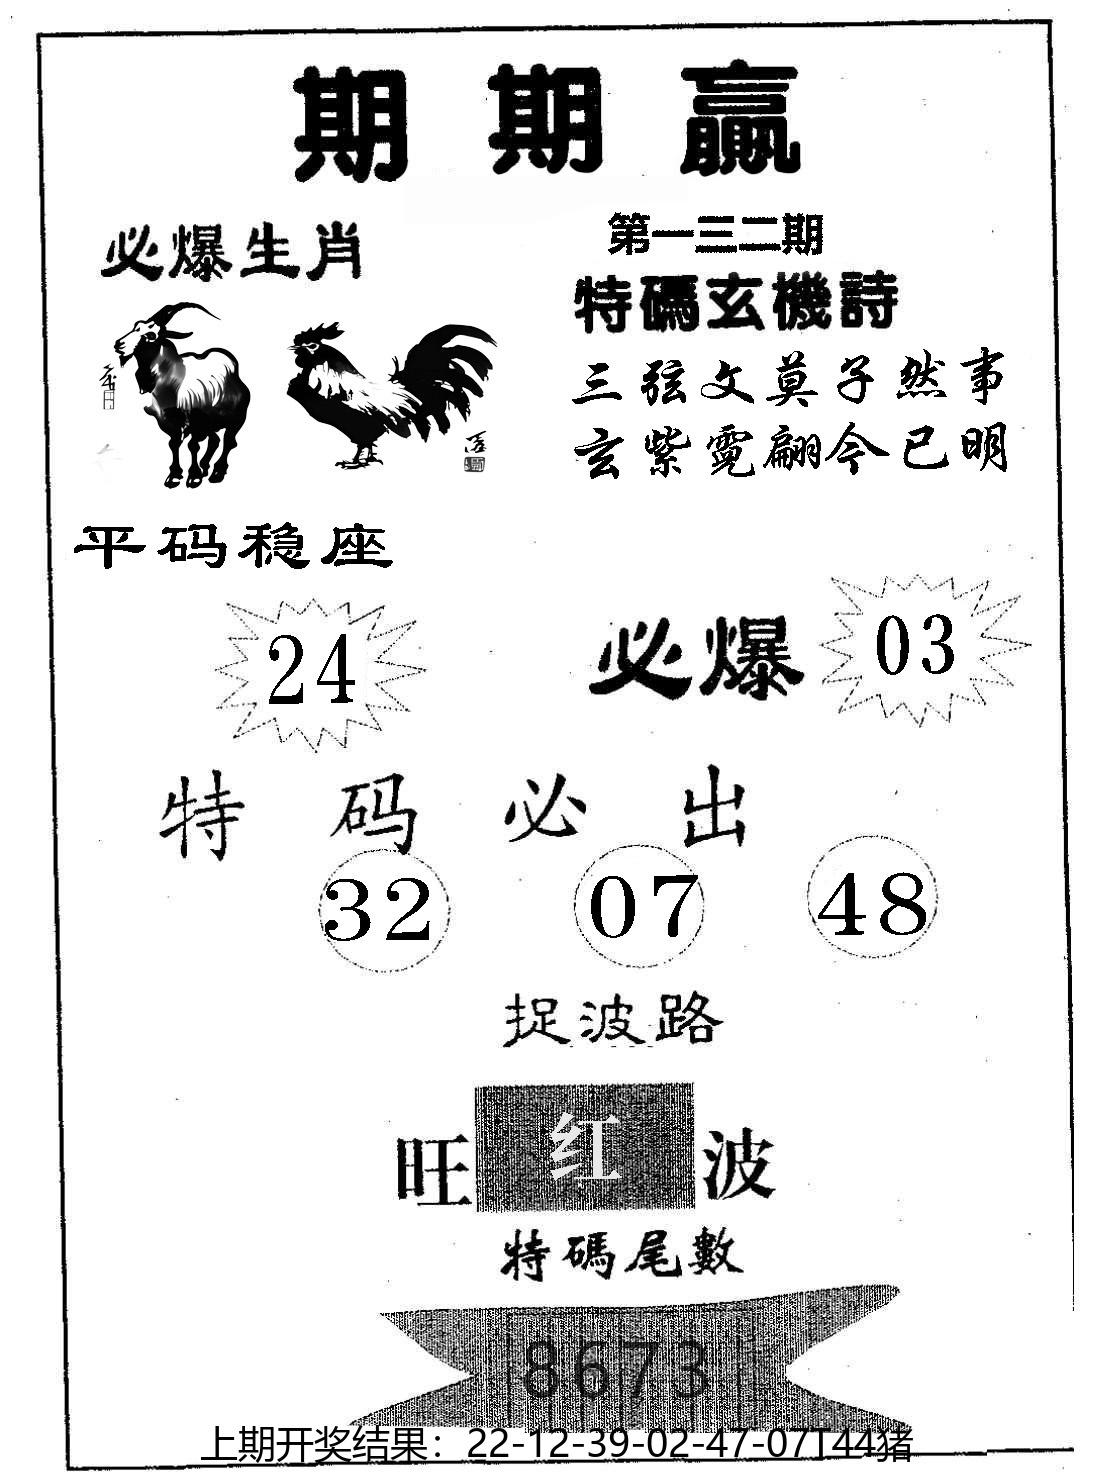 期期贏
必爆生肖
第一三二期
特碼玄機詩
三弦文莫子然事
玄紫霓翩今已明
平码稳座
24
必爆 03
特码必出
32 07 48
捉波路
旺 红 波
特碼尾數
8673
上期开奖结果：22-12-39-02-47-07T44猪